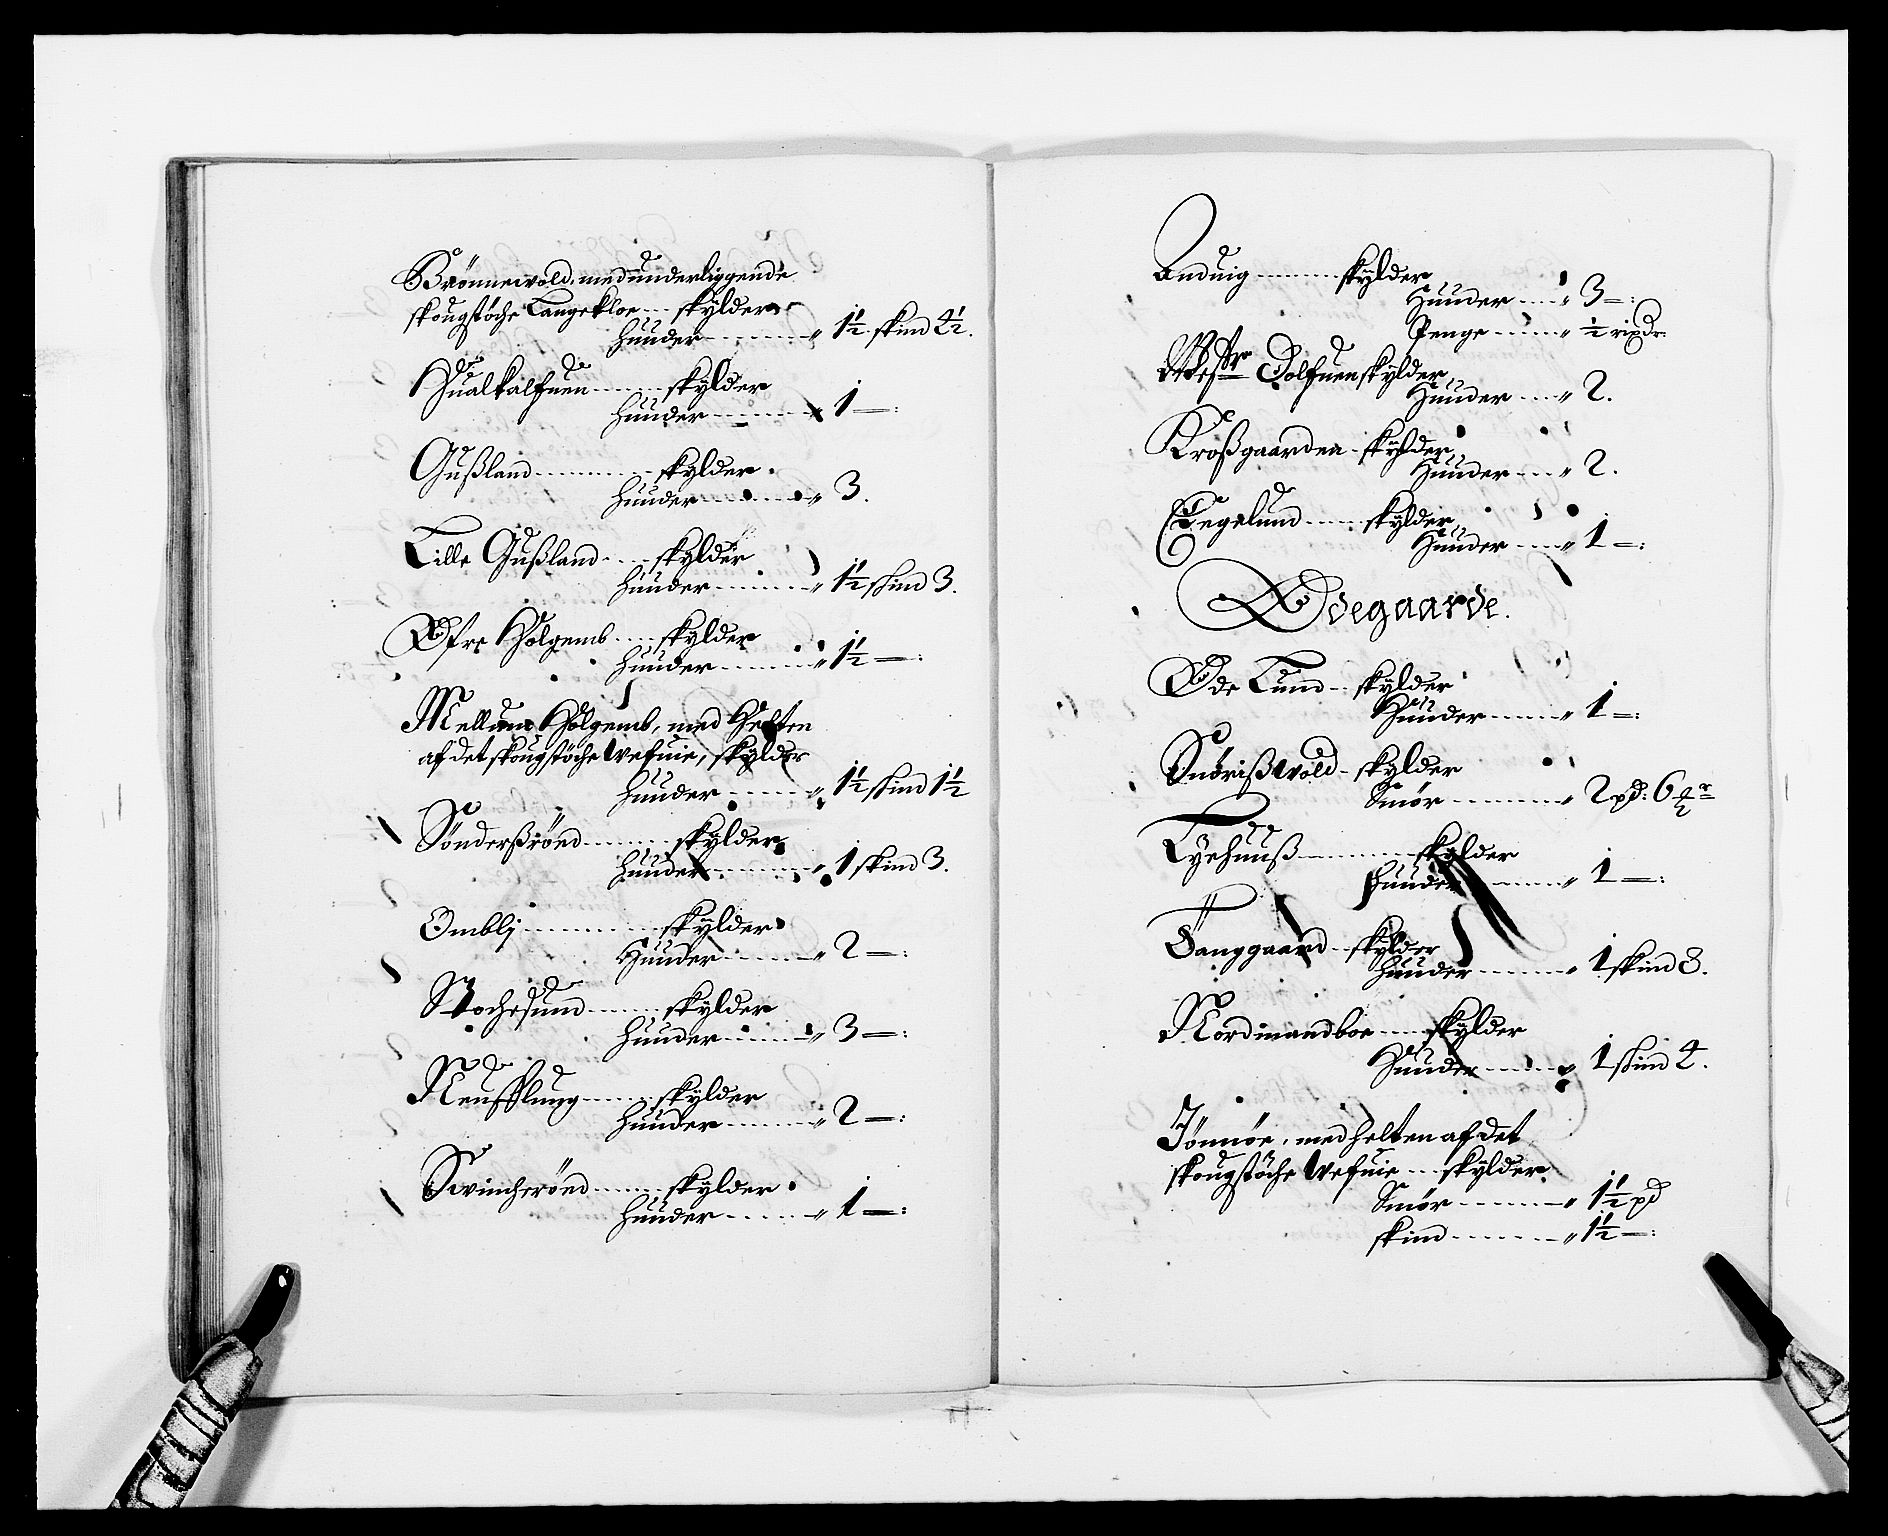 Brönnewold, med underliggende
skougstöche Langekloe .... skylder
Huuder ........ „ 1½ skind 2½.
Hualkalfuen ....... skylder
Huuder ........ „ 1 —:
Gußland ........... skylder
Huuder ........ „ 3.
Lille Gußland .... skylder
Huuder ........ „ 1½ skind 3.
Öfre Holgemb ..... skylder
Huuder ........ „ 1½ —:
Mellum Holgemb, med Helten
af det skougstöche Wefuie, skylder
Huuder ........ „ 1½ skind 1½
Sönderßröed ........ skylder
Huuder ........ „ 1 skind 3.
Omblj ............ skylder
Huuder ........ „ 2 —:
Stochesund ........ skylder
Huuder ........ „ 3 —:
Neufflung ....... skylder
Huuder ........ „ 2 —:
Swincheröed ....... skylder
Huuder ........ „ 1 —:
Anduig ........ skylder
Huuder .... „ 3 —:
Penge ..... „ ½ rixdr
Westr Dolfuen skylder
Huuder .... „ 2.
Kroßgaarden - skylder
Huuder .... „ 2.
Tegelund ...... skylder
Huuder .... „ 1 —:
Ödegaarde.
Öde Lund - skylder
Huuder ...... „ 1 —:
Snörißwold - skylder
Smör ........ „ 2 pd: 6
Lyehuuß .......... skylder
Huuder ........ „ 1 —:
Tanggaard - skylder
Huuder ........ „ 1 skind 3.
Nordmandboe ..... skylder
Huuder ....... „ 1 skind 4.
Jönnöe, med helten af det
skougstöche Wefuie ... skylder
Smör ........ „ 1½ pd
skind ........ „ 1½ —: